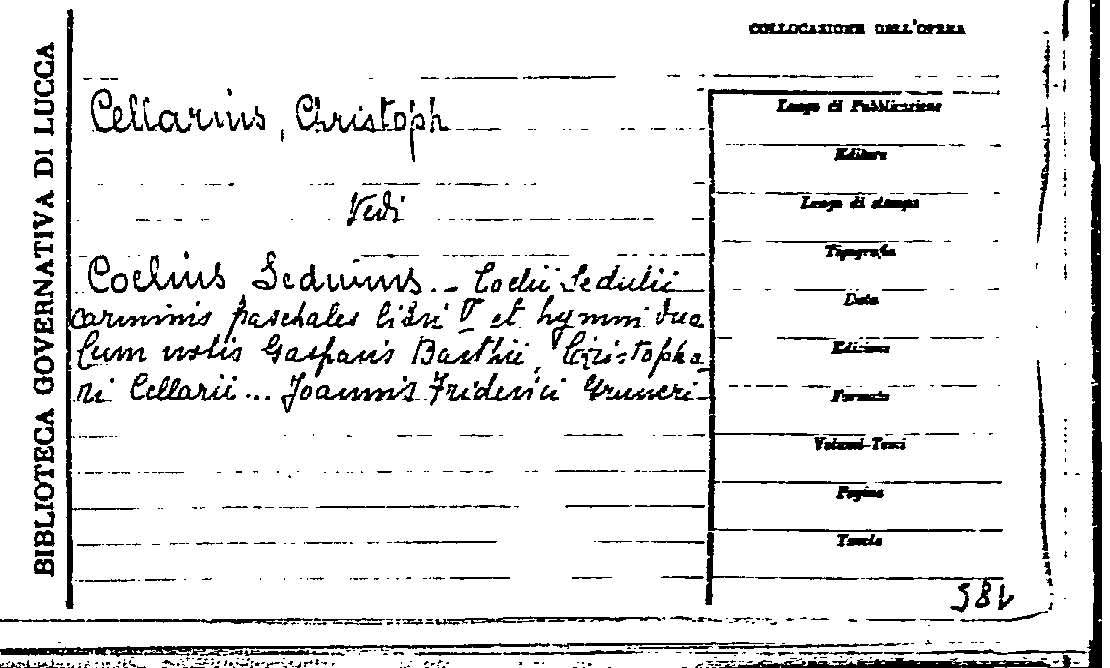 BIBLIOTECA GOVERNATIVA DI LUCCA
COLLOCAZIONE DELL'OPERA
Cellarius, Christoph
Vedi
Coelius Sedulius. - Coelii Sedulii
carminis paschales libri V et hymni duo
Cum notis Gasparis Barthii, Christopho
ri Cellarii... Joannis Friderici Gruneri
Luogo di Pubblicazione
Editore
Luogo di stampa
Tipografia
Data
Edizione
Formato
Volumi-Tomi
Pagine
Tavole